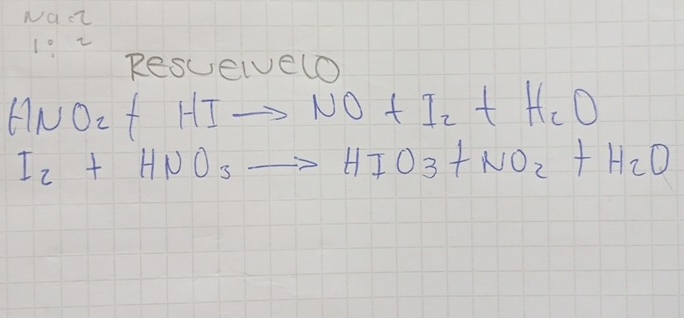 Na:2
1: 2
RESUElVElO
HNO₂ + HI → NO + I₂ + H₂O
I₂ + HNO₃ → HIO₃ + NO₂ + H₂O